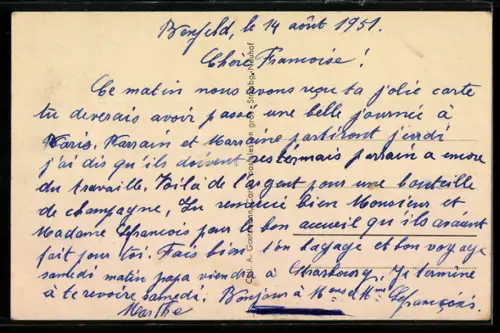 Benfeld, le 14 août 1951.
Chère Francoise!
Ce matin nous avons reçu ta jolie carte
tu deverais avoir passé une belle journée à
Paris. Parrain et Marraine partiront jeudi
j'ai dis qu'ils doivent restermais parrain a encore
du travaille. Voila de l'argent pour une bouteille
de champagne, Tu remercie bien Monsieur et
Madame Lefrancois pour le bon accueil qu'ils avaient
fait pour toi. Fais bien ton bagage et bon voyage
samedi matin papa viendra à Strasbourg. Je termine
à te revoire samedi. Bonjour à Mr et Mme Lefrançois.
Marthe